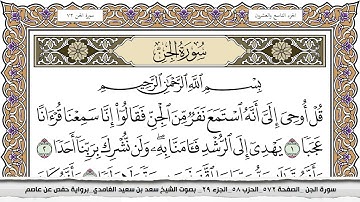 الجزء التاسع والعشرون
سورة الجن ٧٢
سُورَةُ الجِنِّ
بِسْمِ اللَّهِ الرَّحْمَٰنِ الرَّحِيمِ
قُلْ أُوحِىَ إِلَىَّ أَنَّهُ ٱسْتَمَعَ نَفَرٌ مِّنَ ٱلْجِنِّ فَقَالُوٓا۟ إِنَّا سَمِعْنَا قُرْءَانًا
عَجَبًا ١ يَهْدِىٓ إِلَى ٱلرُّشْدِ فَـَٔامَنَّا بِهِۦ وَلَن نُّشْرِكَ بِرَبِّنَآ أَحَدًا ٢
سورة الجن _الصفحة ٥٧٢_ الحزب ٥٨ _الجزء ٢٩ _ بصوت الشيخ سعد بن سعيد الغامدي _برواية حفص عن عاصم